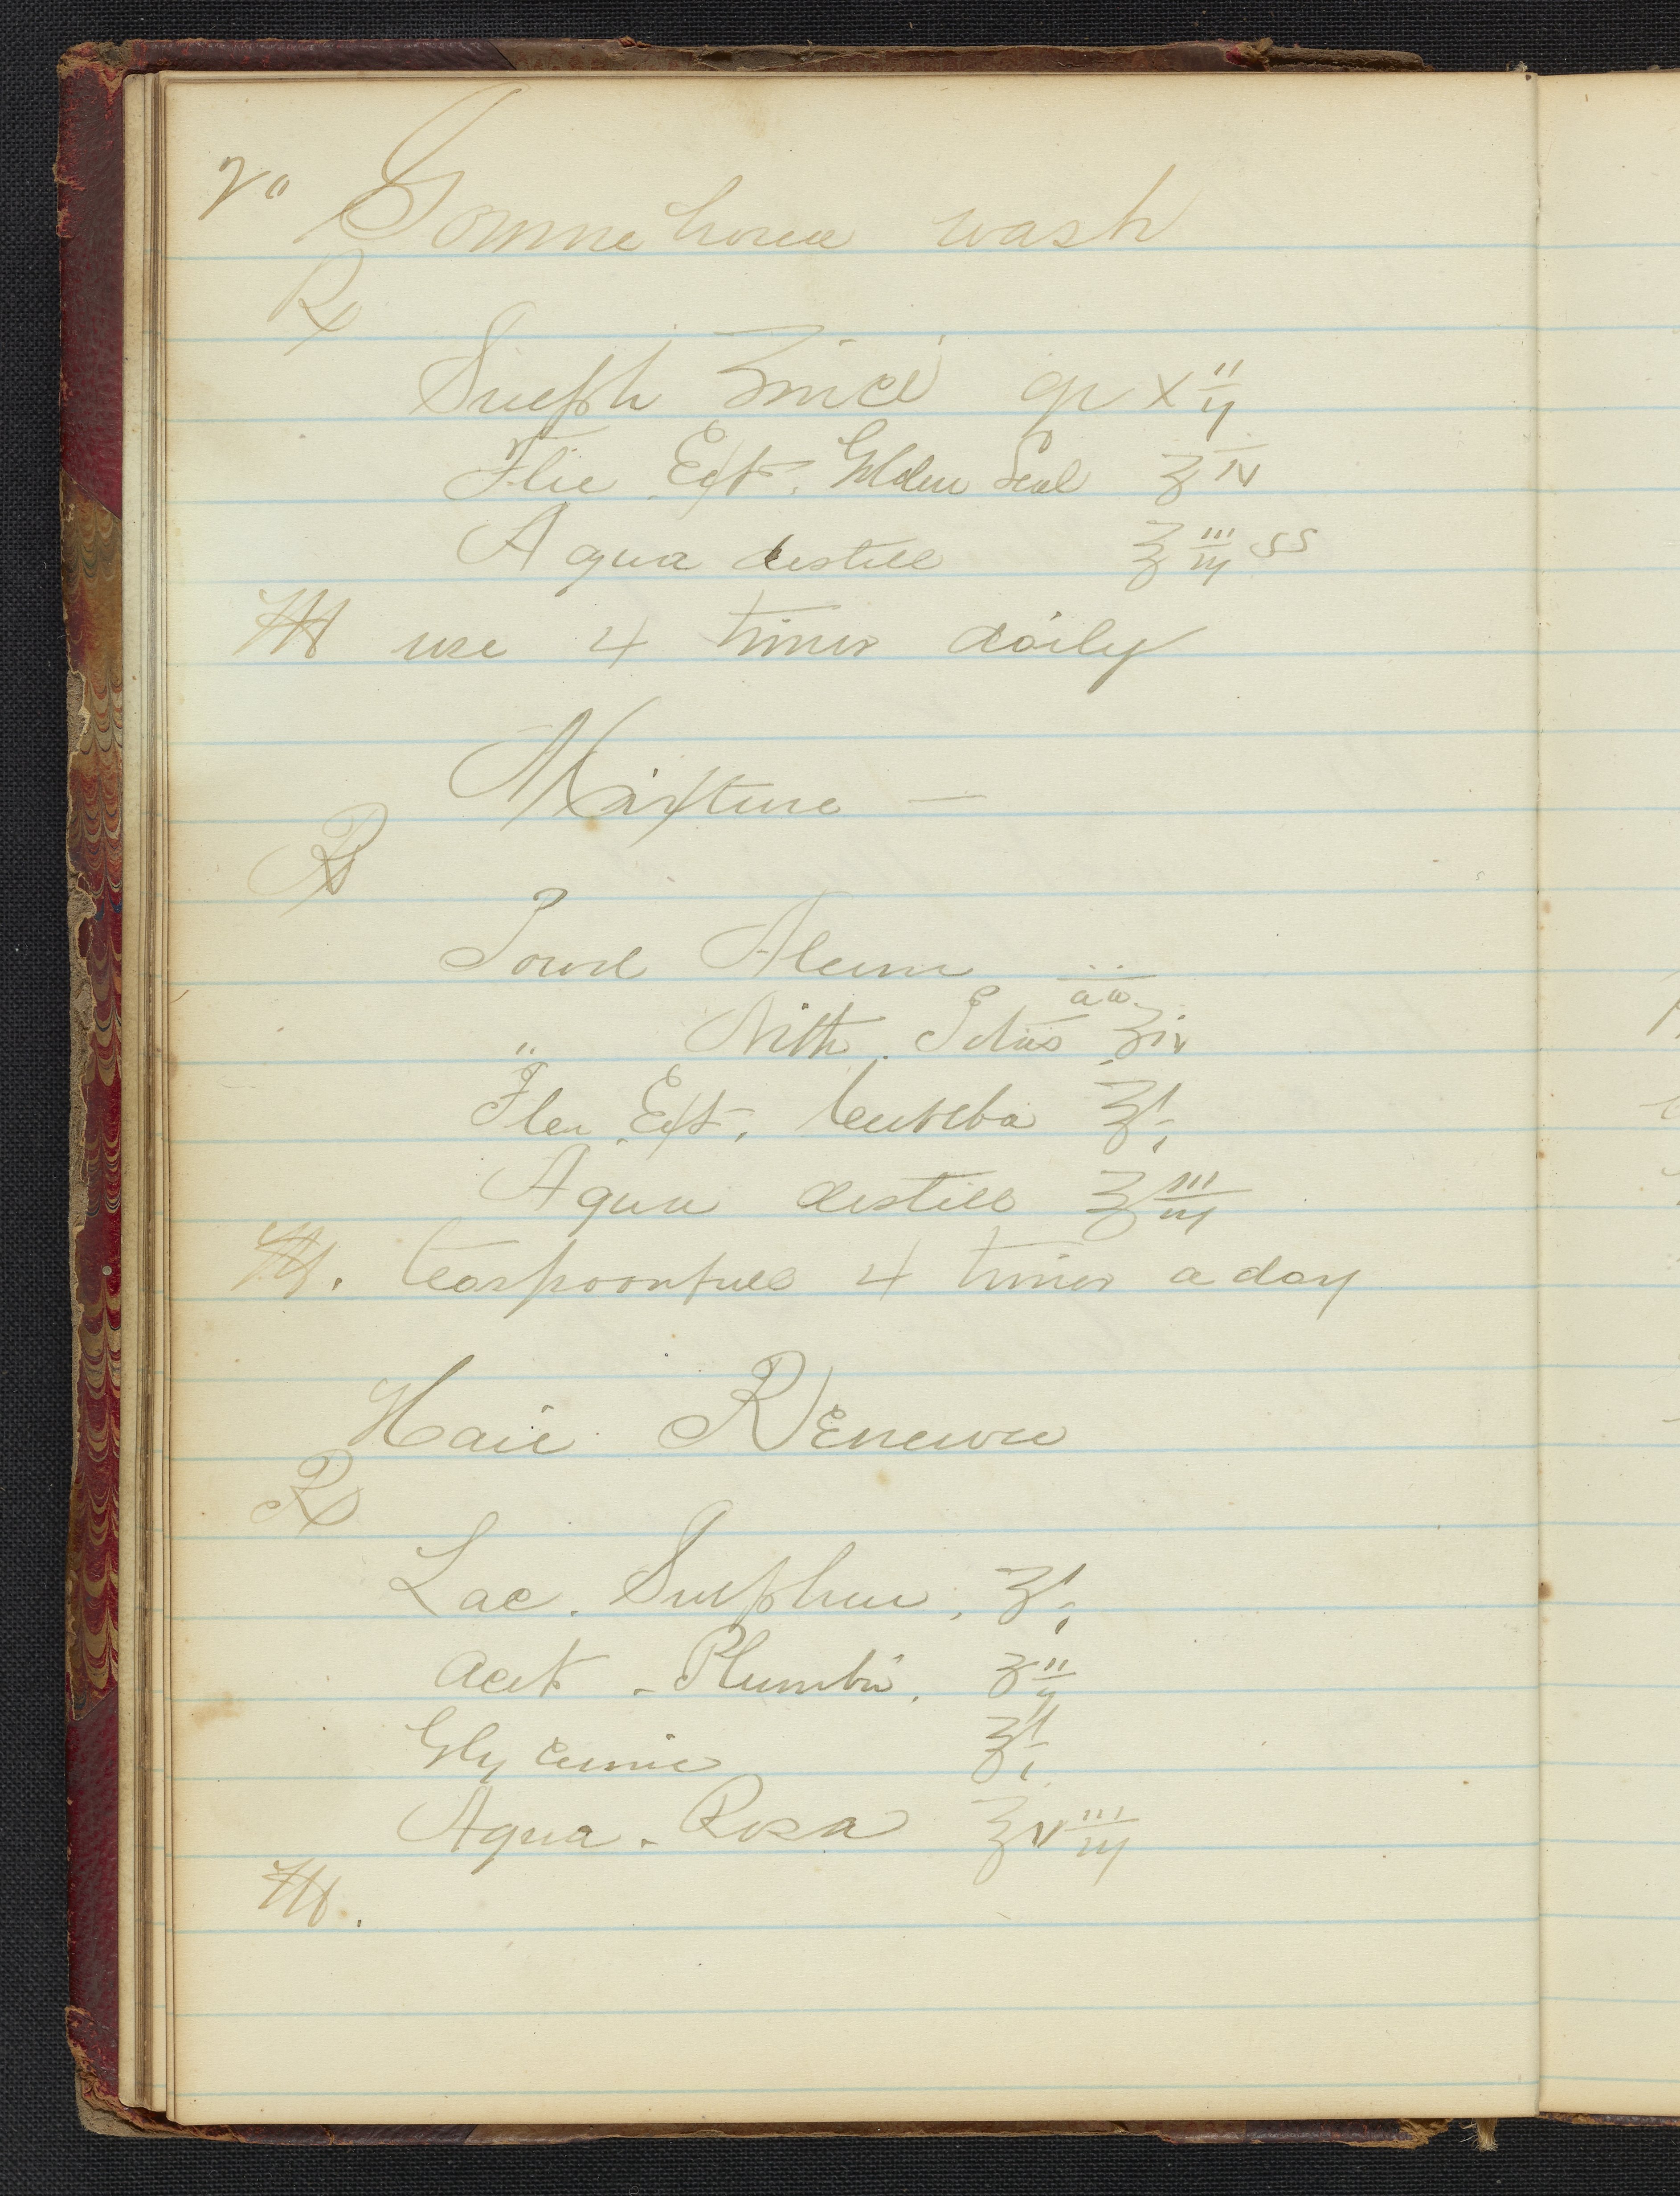 70 Gonnehorea wash
Rx
Sulph Zinci gr xii
Flu Ext. Golden Seal ℥ iv
Aqua destill ℥ iii ss
M use 4 times daily
Mixture —
Rx
Powd Alum aa
" Nitr. Potas ʒiv
Flu Ext. Cubeba ℥i
Aqua destill ℥ iii
M. teaspoonfull 4 times a day
Hair Renewer
Rx
Lac. Sulphur. ʒi
Acet. Plumbi. ʒii
Glycerine ℥i
Aqua. Rosa ℥viii
M.